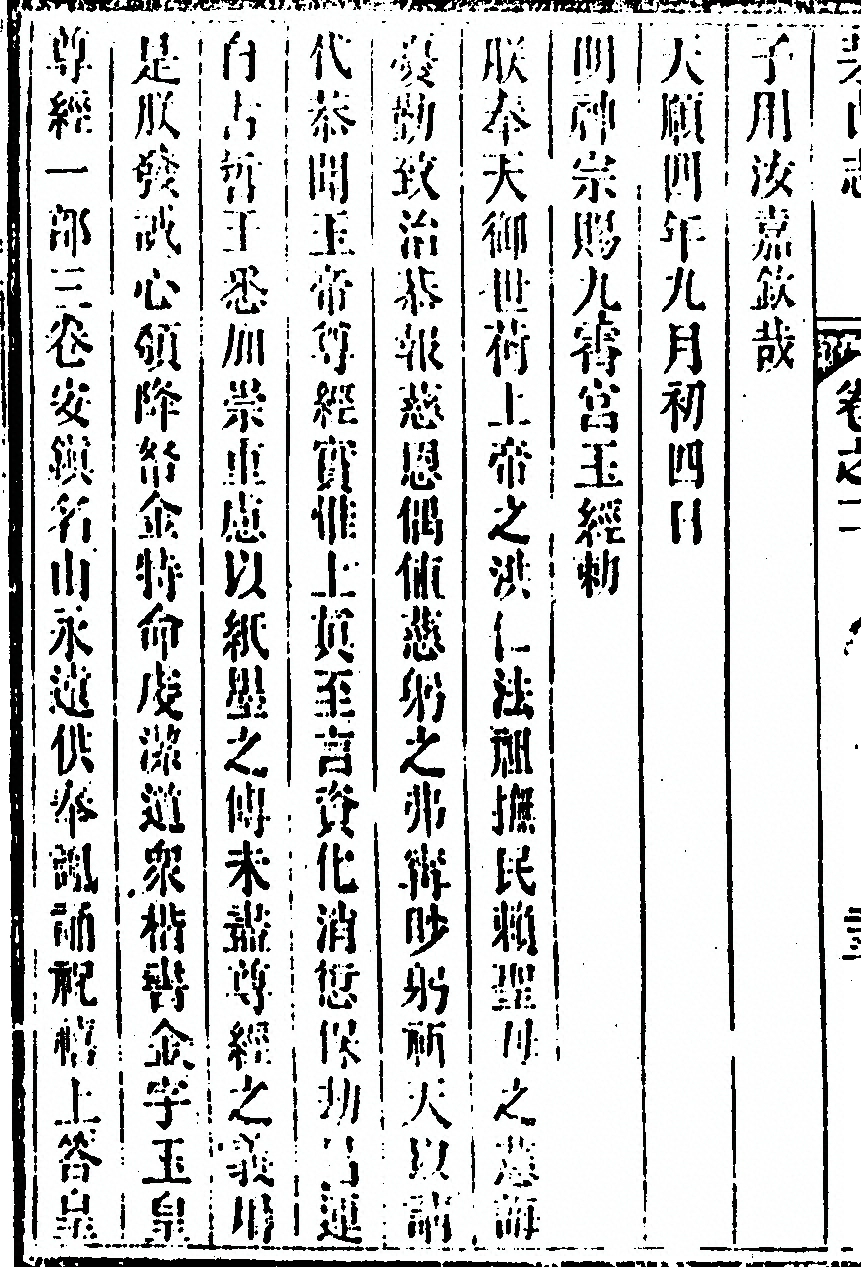 子用汝嘉欽哉
天順四年九月初四日
明神宗賜九霄宮玉經勅
朕奉天御世荷上帝之洪仁法祖撫民賴聖母之慈誨
憂勤致治恭報慈恩偶值慈躬之弗寧眇躬祈天以請
代恭聞玉帝尊經寶惟上眞至言資化消愆保劫昌運
自古哲王悉加崇重慮以紙墨之傳未盡尊經之義用
是朕發誠心頒降帑金特命虔潔道衆楷書金字玉皇
尊經一部三卷安鎮名山永遠供奉諷誦祝禧上答皇